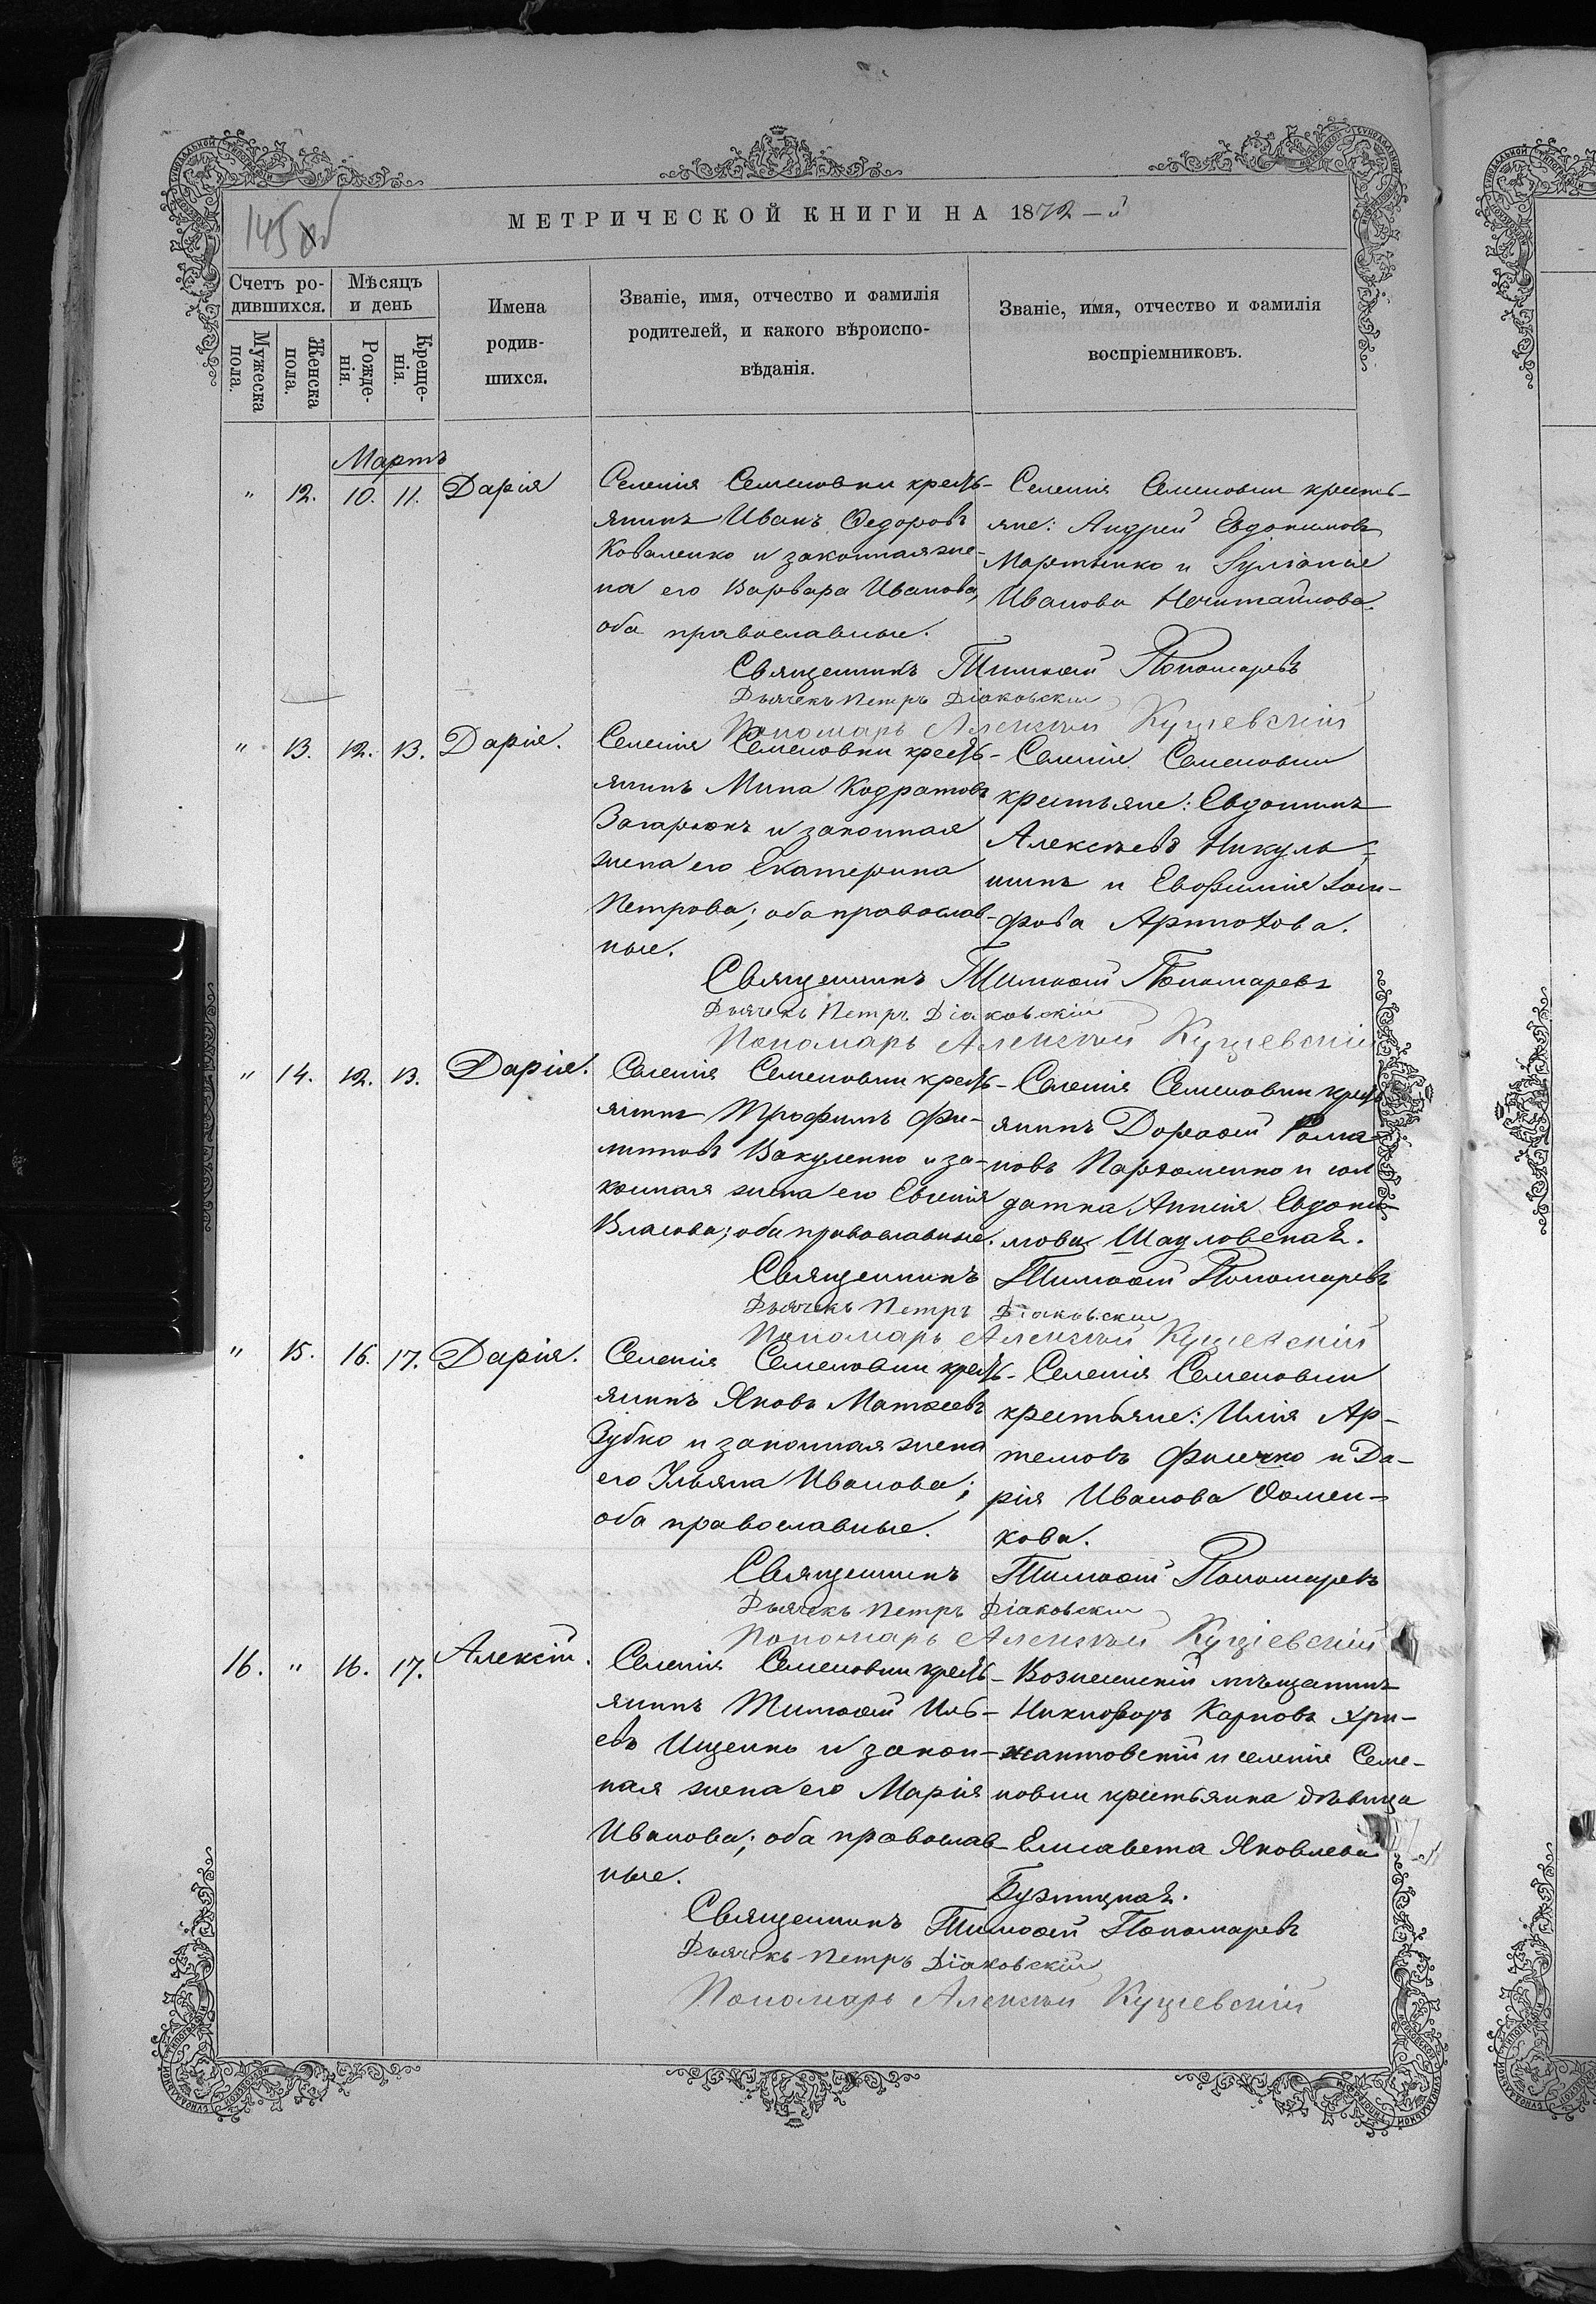 145 об
МЕТРИЧЕСКОЙ КНИГИ НА 1872-й
Счетъ ро-
дившихся.
Мѣсяцъ
и день
Мужеска
пола.
Женска
пола.
Рожде-
нія.
Креще-
нія.
Имена
родив-
шихся.
Званіе, имя, отчество и фамилія
родителей, и какого вѣроиспо-
вѣданія.
Званіе, имя, отчество и фамилія
воспріемниковъ.
Мартъ
" 12. 10. 11. Дарія
Селенія Семеновки кресть-
янинъ Иванъ Ѳедоровъ
Коваленко и законная же-
на его Варвара Иванова,
оба православные.
Селенія Семеновки кресть-
яне: Андрей Евдокимовъ
Мартынко и Іуліанія
Иванова Нечитайлова.
Священникъ Тимоѳей Пономаревъ
Дьячекъ Петръ Діаковскій
Пономарь Алексѣй Кущевскій
" 13. 12. 13. Дарія.
Селенія Семеновки кресть-
янинъ Мина Кодратовъ
Загарюкъ и законная
жена его Екатерина
Петрова; оба православ-
ные.
Селенія Семеновки
крестьяне: Евдокимъ
Алексѣевъ Никуль-
шинъ и Евфимія
Священникъ Тимоѳей Пономаревъ
Дьячекъ Петръ Діаковскій
Пономарь Алексѣй Кущевскій
" 14. 12. 13. Дарія.
Селенія Семеновки кресть-
янинъ Трофимъ Фи-
липповъ Вакуленко и за-
конная жена его Евгенія
Власова; оба православные.
Селенія Семеновки кресть
янинъ Дороѳей Рома-
новъ Пархоменко и сол
датка Аннія Евдоки-
мова Шауловская.
Священникъ Тимоѳей Пономаревъ
Дьячекъ Петръ Діаковскій
Пономарь Алексѣй Кущевскій
" 15. 16. 17. Дарія.
Селенія Семеновки кресть-
янинъ Яковъ Матѳеевъ
Зубко и законная жена
его Ульяна Иванова;
оба православные.
Селенія Семеновки
крестьяне: Илія Ар-
темовъ Филичко и Да-
рія Иванова Ѳомен-
кова.
Священникъ Тимоѳей Пономаревъ
Дьячекъ Петръ Діаковскій
Пономарь Алексѣй Кущевскій
16. " 16. 17. Алексій.
Селенія Семеновки кресть-
янинъ Тимоѳей Иль-
евъ Ищенко и закон-
ная жена его Марія
Иванова; оба православ-
ные.
Вознесенскій мѣщанинъ
Никифоръ Карповъ Хри-
жантовскій и селенія Семе-
новки крестьянка дѣвица
Елисавета Яковлева
Бузницкая.
Священникъ Тимоѳей Пономаревъ
Дьячекъ Петръ Діаковскій
Пономарь Алексѣй Кущевскій